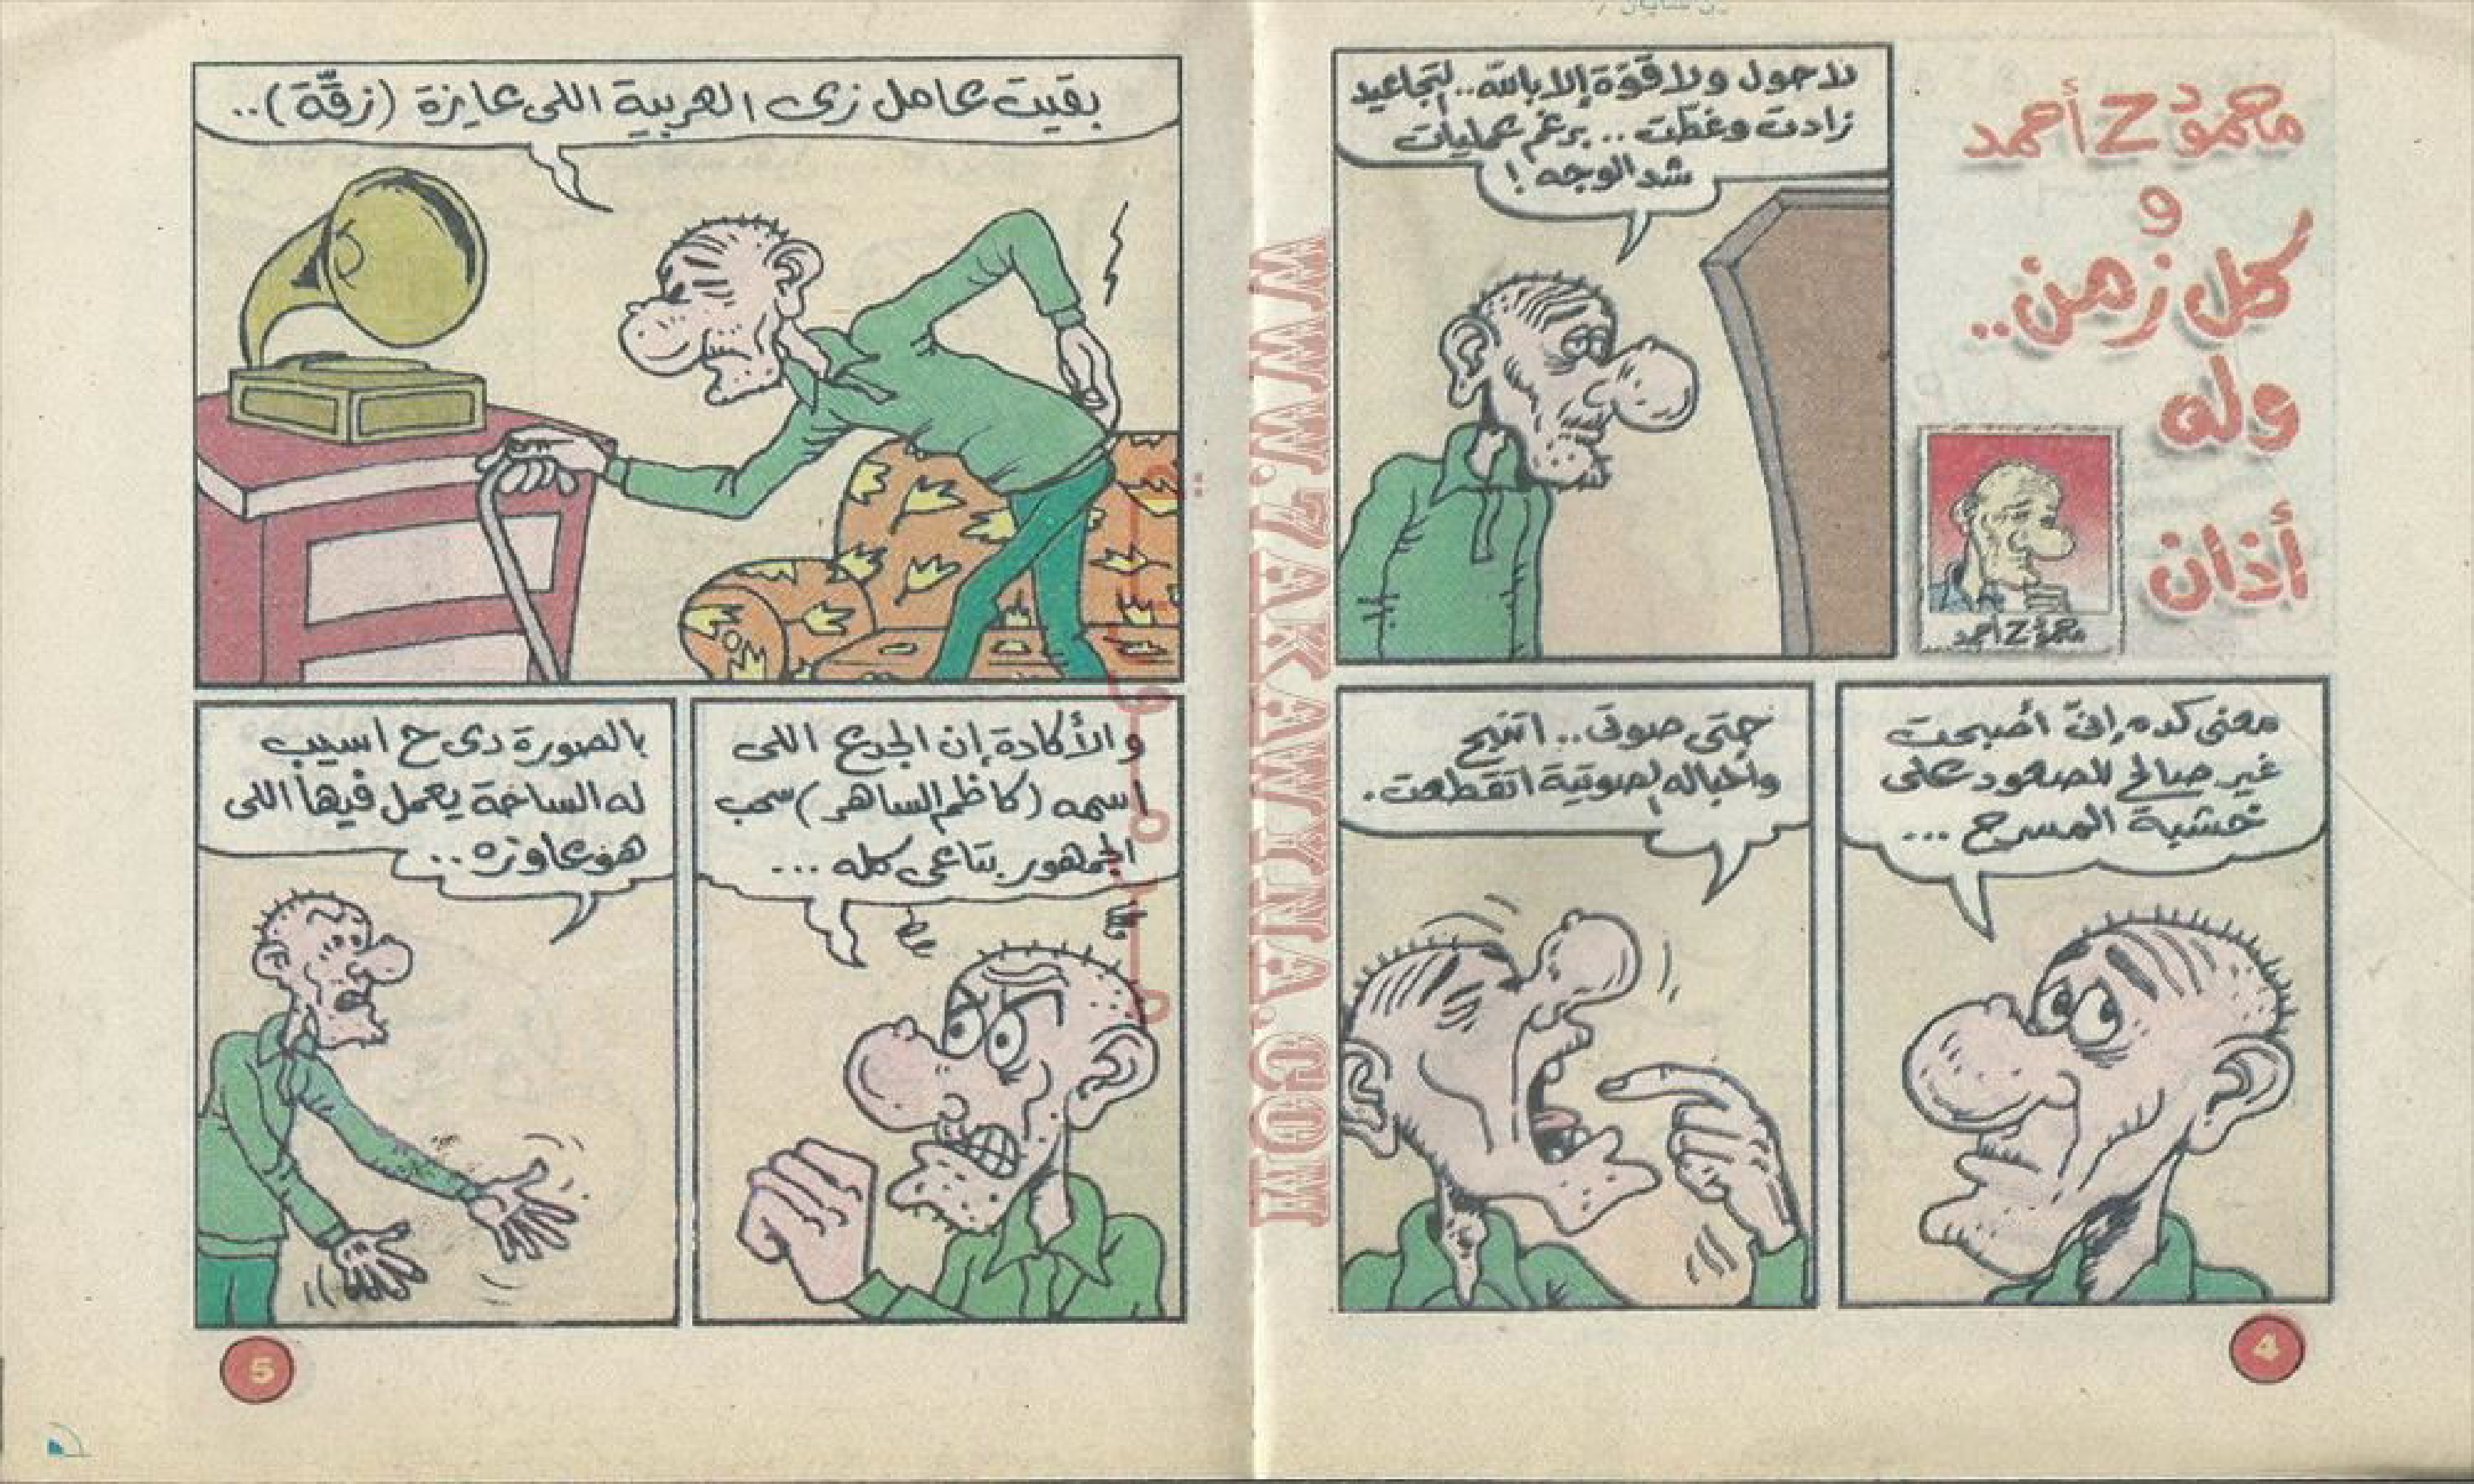 محمود Z أحمد
و
كل زمن..
وله
أذان
محمود Z أحمد
لا حول ولا قوة إلا بالله.. لتجاعيد
زادت وغطت.. برغم عمليات
شد الوجه !
معنى كده إنى أصبحت
غير صالح للصعود على
خشبة المسرح ...
حتى صوتى.. اتنبح
وأحباله لصوتية اتقطعت.
4
WWW.7AKAWYINA.COM
بقيت عامل زى العربية اللى عايزة (زقة)..
والأكادة إن الجدع اللى
اسمه (كاظم الساهر) سحب
الجمهور بتاعى كله ...
بالصورة دى ح اسيب
له الساحة يعمل فيها اللى
هو عاوزه..
5